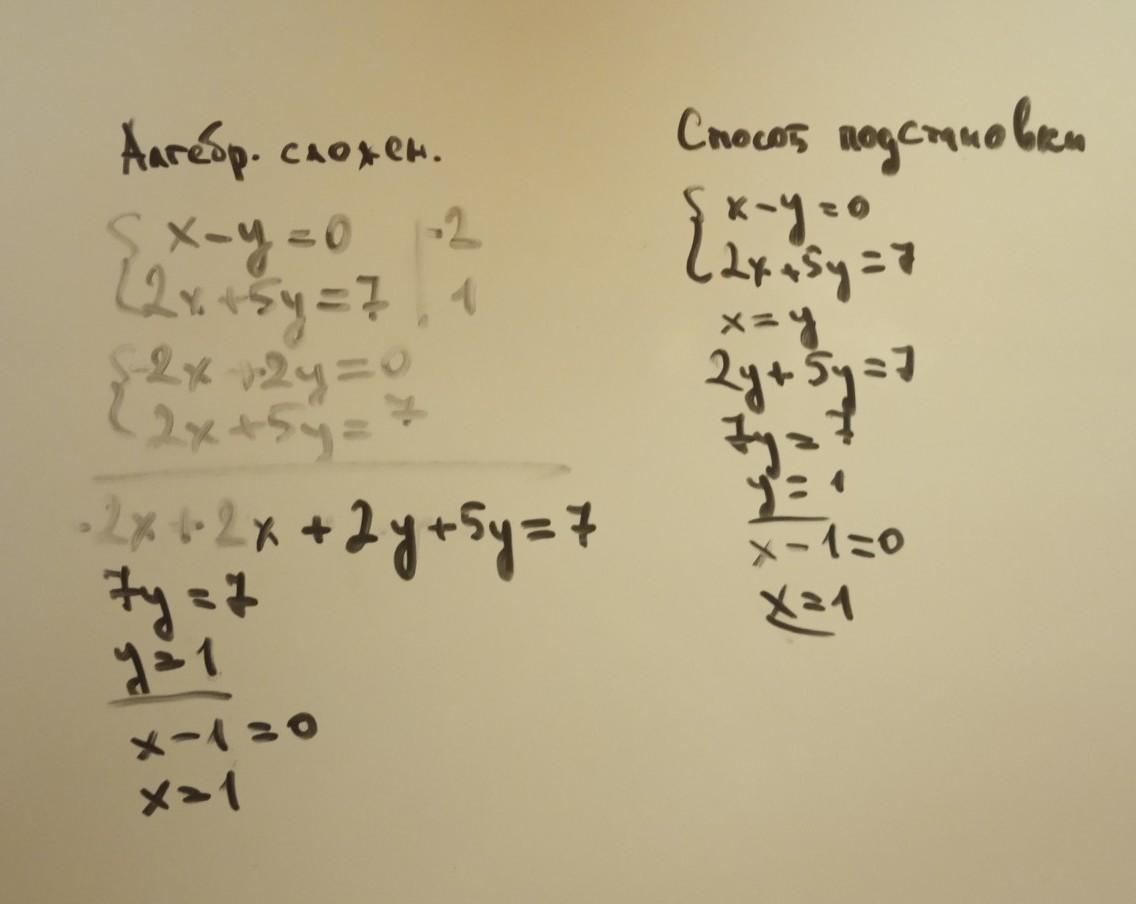 Алгебр. сложен.
{ x-y=0 | -2
{ 2x+5y=7 | 1
{ -2x+2y=0
{ 2x+5y=7
-2x+2x+2y+5y=7
7y=7
y=1
x-1=0
x=1
Способ подстановки
{ x-y=0
{ 2x+5y=7
x=y
2y+5y=7
7y=7
y=1
x-1=0
x=1